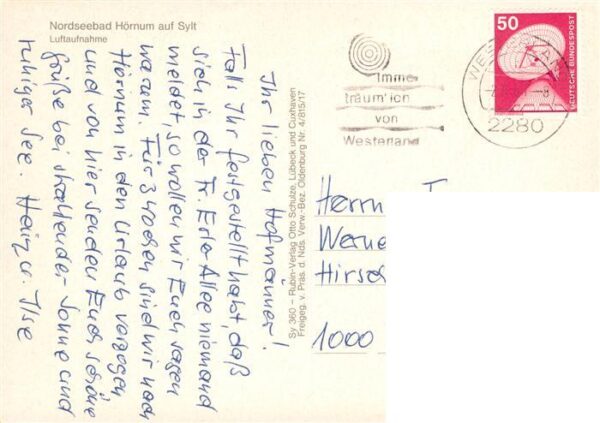 Nordseebad Hörnum auf Sylt
Luftaufnahme
Ihr lieben Hofmänner!
Falls Ihr festgestellt habt, daß
sich in der Fr. Erler Allee niemand
meldet, so wollen wir Euch sagen
warum. Für 3 Wochen sind wir nach
Hörnum in den Urlaub gezogen
und von hier senden Euch schöne
Grüße bei strahlender Sonne und
ruhiger See. Heinz u. Ilse
Sy 360 – Rubin-Verlag Otto Schulze, Lübeck und Cuxhaven
Freigeg. v. Präs. d. Nds. Verw.-Bez. Oldenburg Nr. 4/815/17
Imme
träum' ich
von
Westerland
2280
50
DEUTSCHE BUNDESPOST
Herrn
Werne
Hirsc
1000